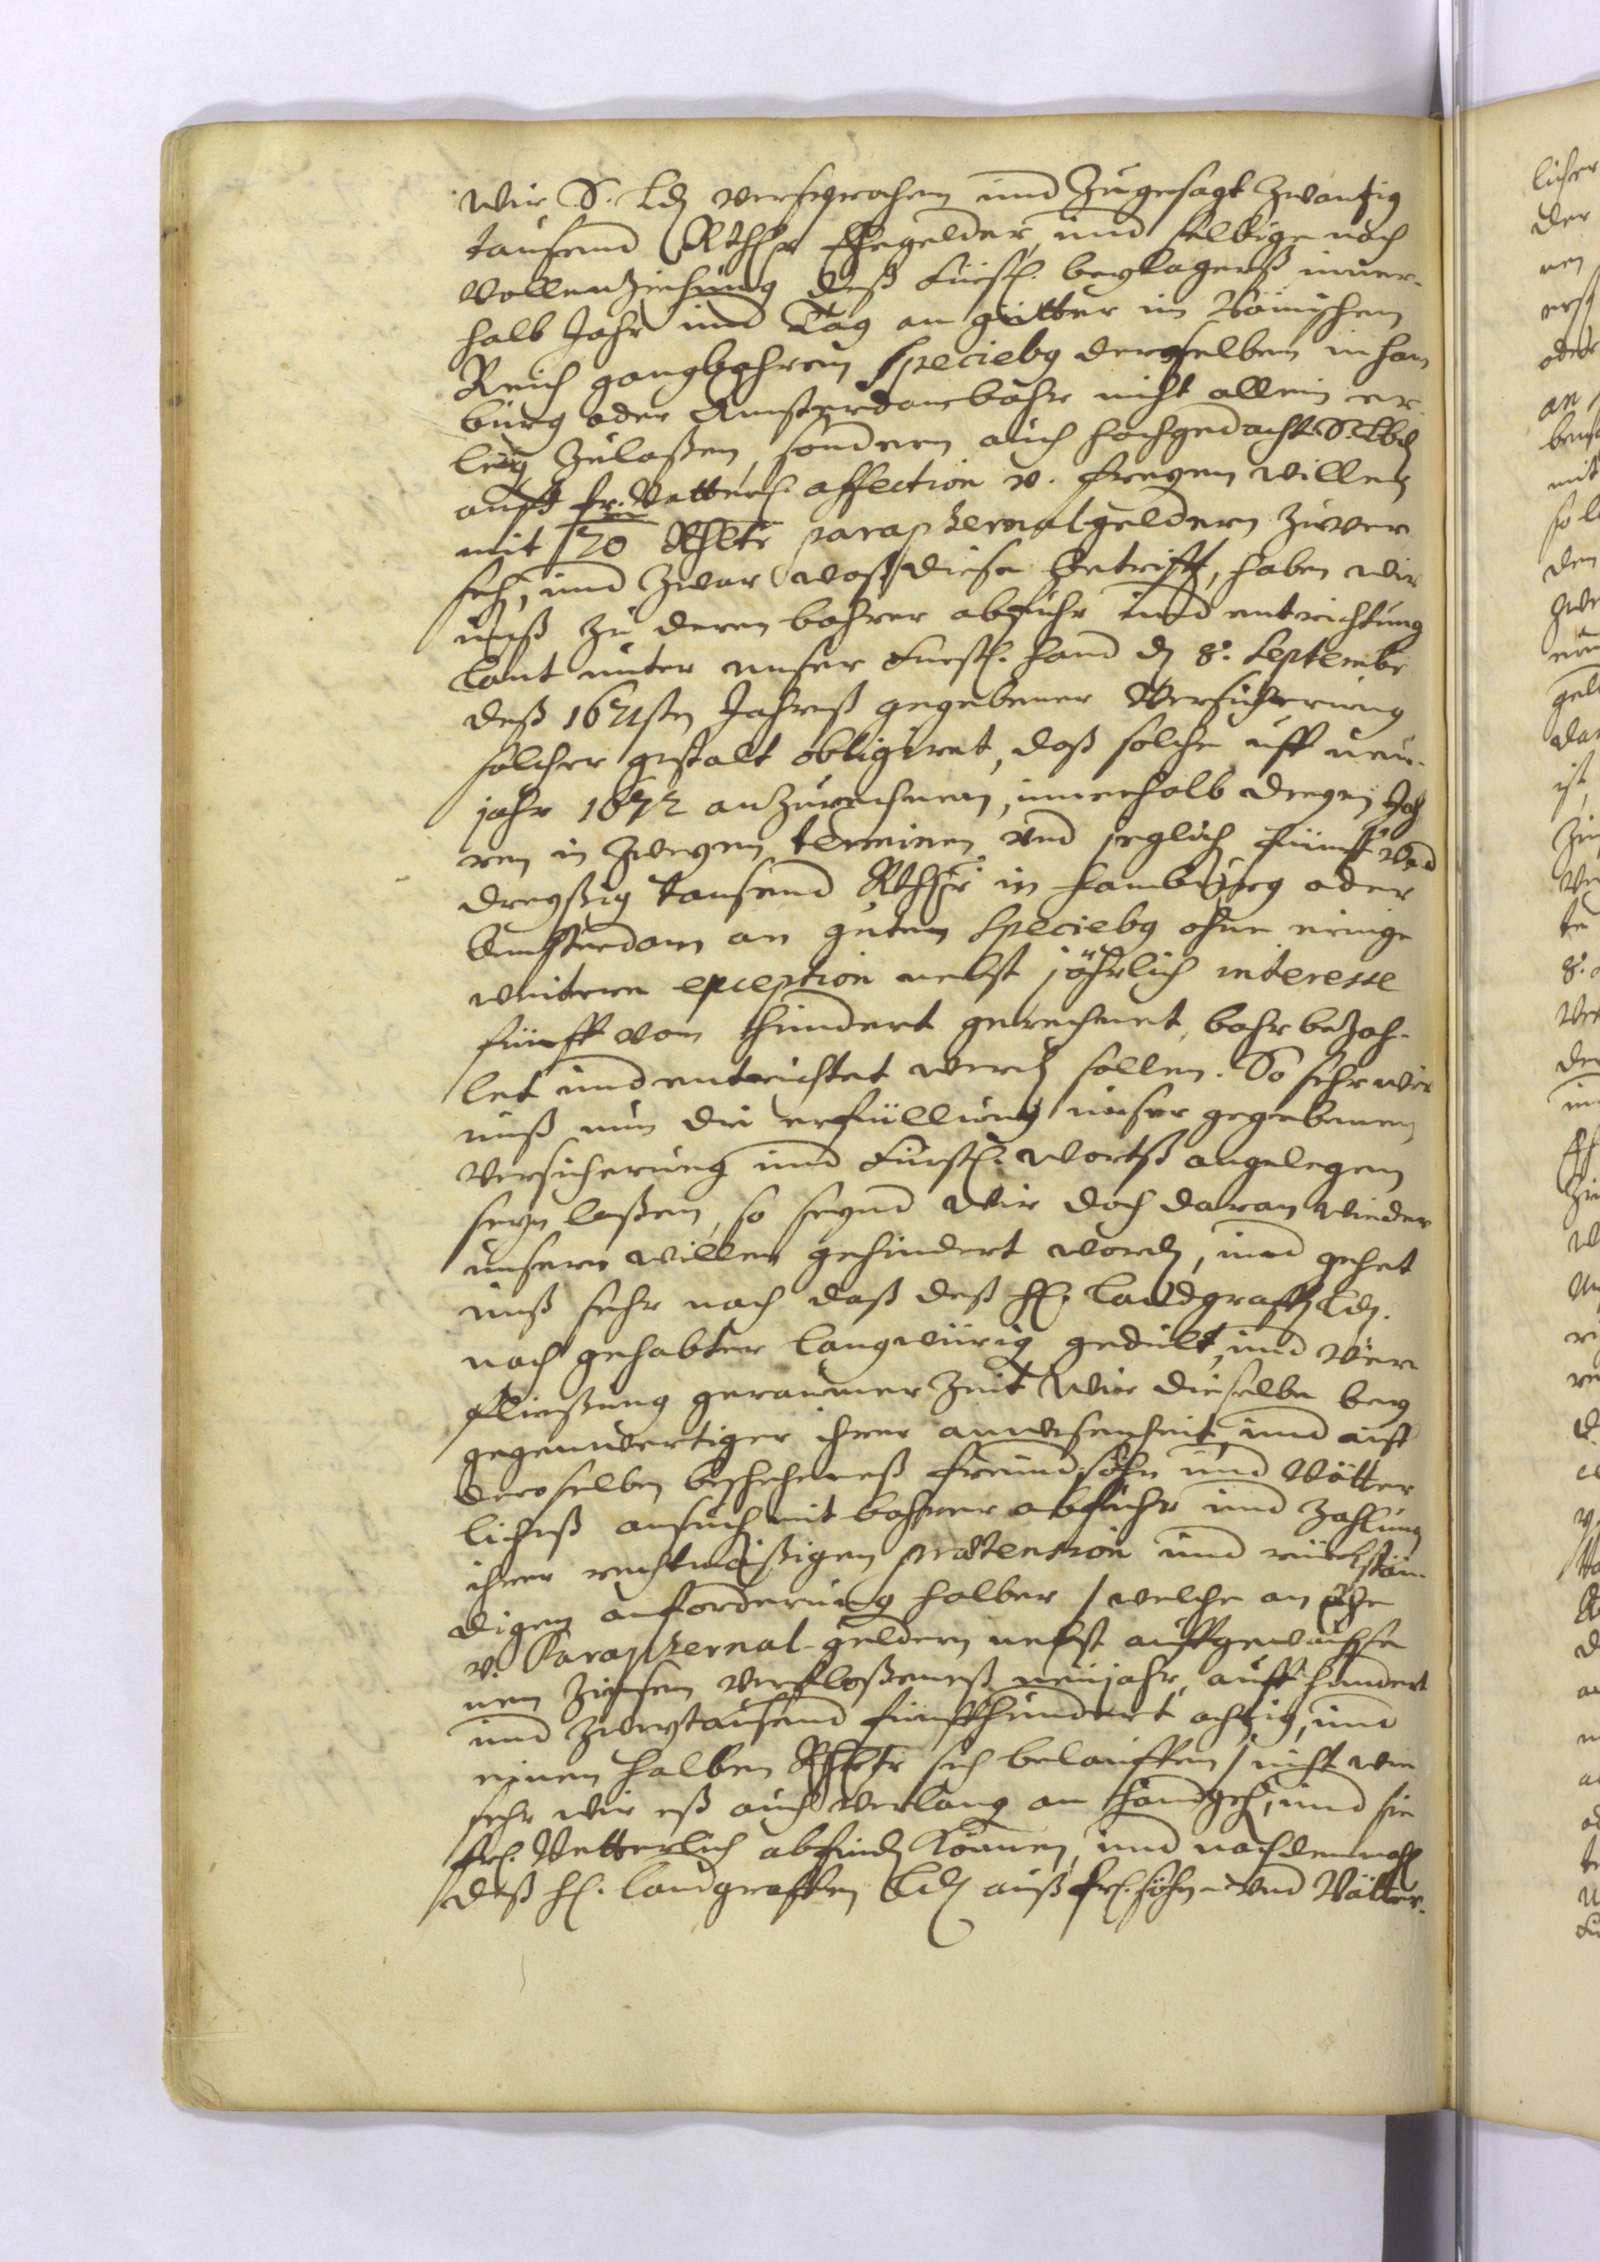 wir S. Ld. versprochen und zugesagt zwantzig
tausend Rthlr Ehegelder, und selbige nach
Vollenziehung deß Fürstl. beylagerß inner-
halb Jahr und Tag an gutter im Römischen
Reich gangbahren speciebg derselben in Ham
burg oder Amsterdam bahr nicht allein er
leg zulaßen, sondern auch hochgedacht S. Lbd
auß fr. Vatterl. affection v. freyem willen
mit 70 Rthlr paraphernalgeldern zuver
seh, und zwar waß diese betrifft, haben wir
unß zu deren bahrer abfuhr und entrichtung
Laut unter unser Fürstl. hand d 8. Septembr
deß 1671sten Jahrß gegebener Versicherung
solcher gestalt obligiret, daß solche uff neu-
jahr 1672 anzurechnen, innerhalb dreyen Jah
ren in zweyen terminen und jeglich fünff und
dreyßig tausend Rthlr in Hamburg oder
Amsterdam an guten speciebg ohne einige
weitere exception nebst jährlich interesse
fünff von hundert gerechnet, bahr bezah-
let und entrichtet werd sollen. So sehr wir
unß nun die erfüllung unser gegebenen
Versicherung und Fürstl. worts angelegen
seyn laßen, so seynd wir doch daran wieder
unsern willen gehindert word, und gehet
unß sehr nach daß deß H. Landgraffen Ld.
nach gehabter langwürig gedult, und Ver
fließung geraumer Zeit wir dieselbe bey
gegenwertiger ihrer anwesenheit und auff
deroselben beschehenes freundsöhn und Vätter
liches ansuch mit bahrer abfuhr und zahlung
ihrer rechtmäßigen prætension und rückstän-
digen anforderung halber / welche an Ehe
v. Paraphernal-geldern nebst auffgewachse
nen Zinsen verfloßenes neujahr, auff hundert
und zweytausend fünffhundert achzig, und
einen halben Rthlr sich belauffen / nicht wie
sehr wir eß auch verlang an handgeh, und sie
frl. Vetterlich abfind können, und nachdemmahl
deß H. Landgraffen Ld auß frl. söhn- und Vätter-